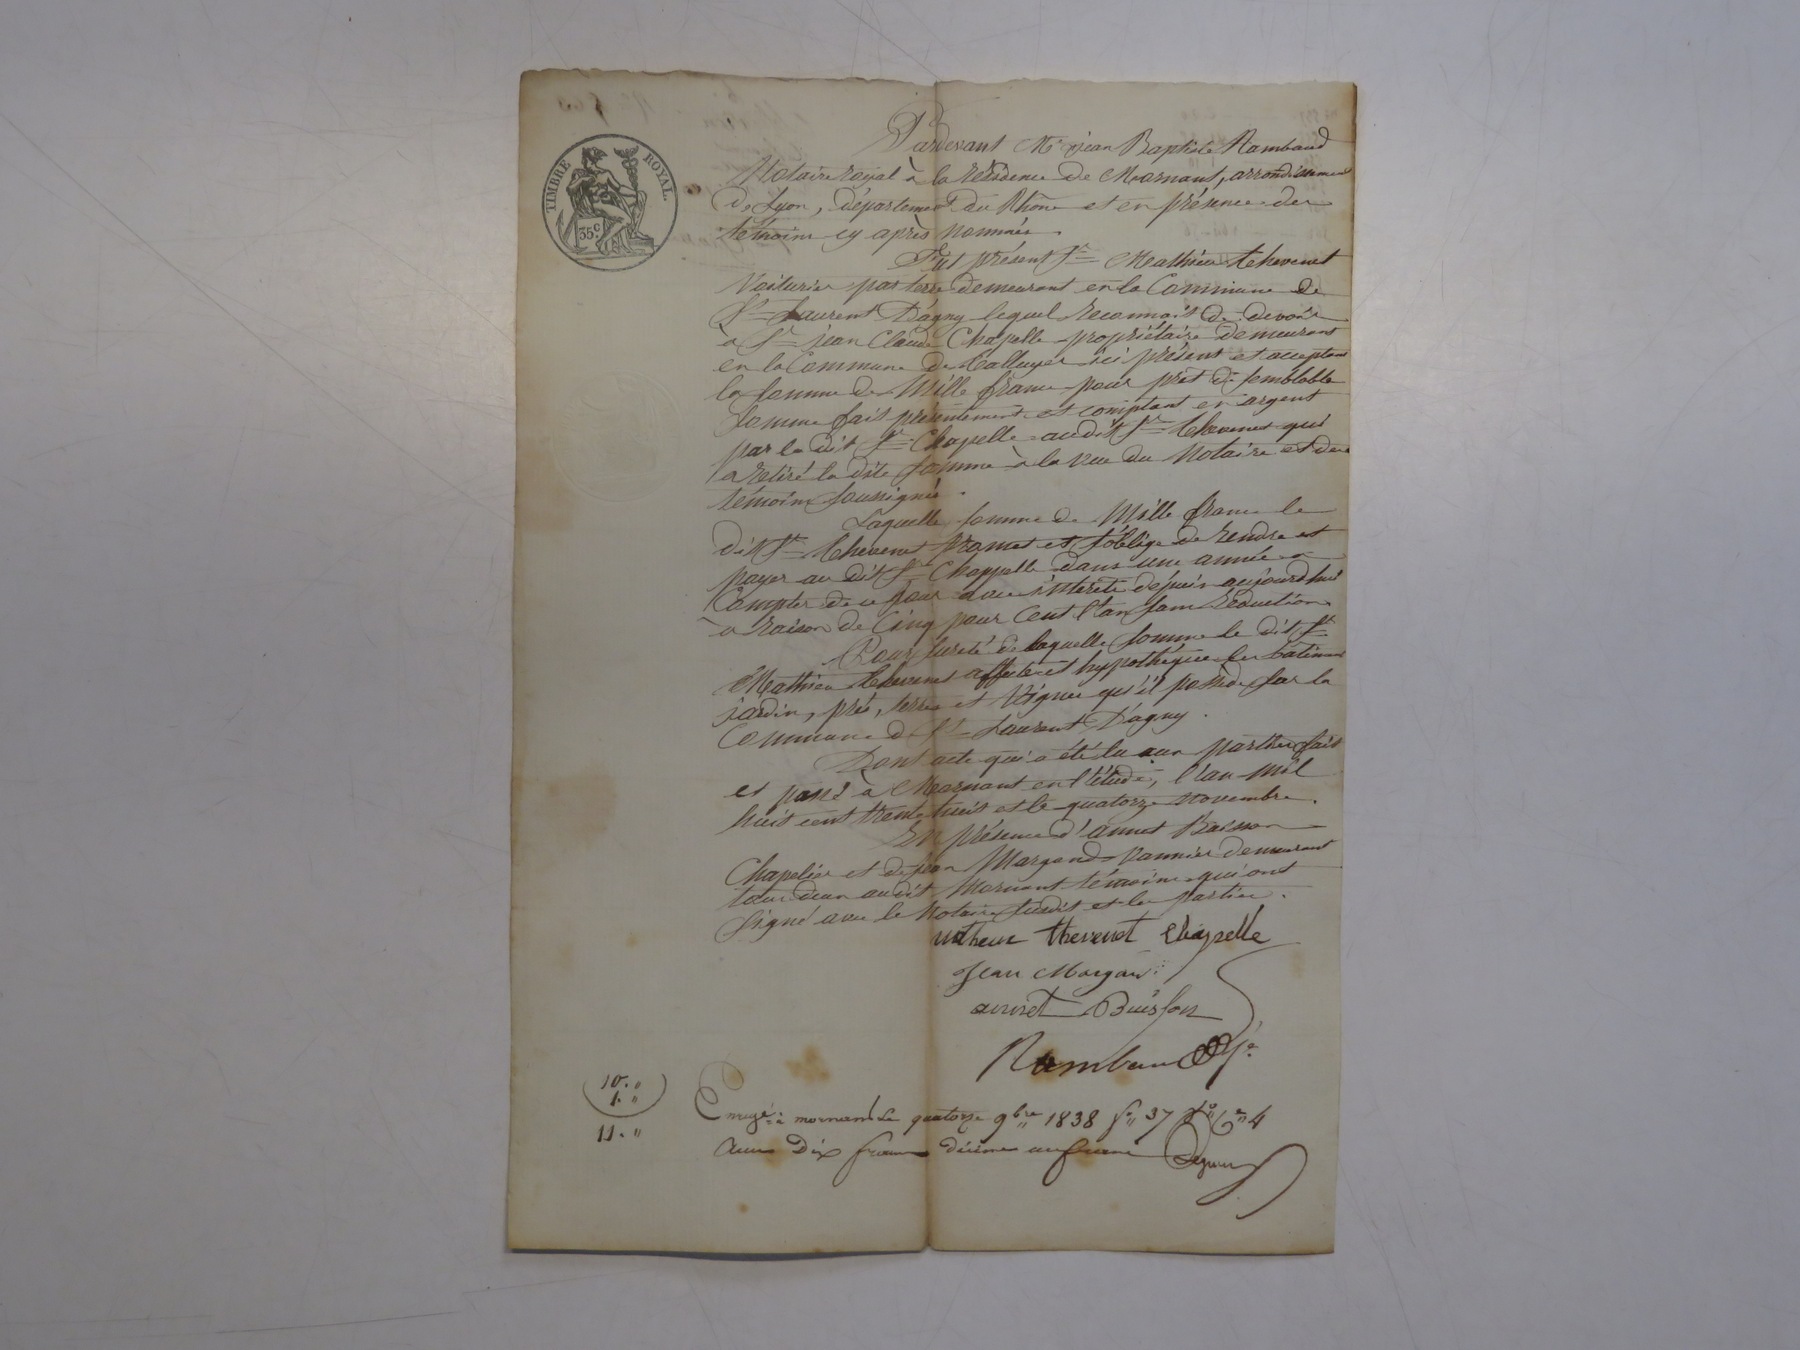 TIMBRE ROYAL.
35c.
Pardevant Me jean Baptiste Rambaud
Notaire royal à la résidence de Mornant, arrondissement
de Lyon, département du Rhône et en présence des
témoins cy après nommés.
Fut présent Sr Mathieu thevenet
Voiturier par terre demeurant en la Commune de
St Laurent D'agny lequel reconnait de devoir
à Sr jean Claude Chapelle propriétaire demeurant
en la Commune de talluyer ici présent et acceptant
la somme de Mille francs pour prêt de semblable
somme fait présentement et comptant en argent
par le dit Sr Chapelle audit Sr thevenet qui
a retiré la dite somme à la vue du Notaire et des
témoins soussignés.
Laquelle somme de Mille francs le
dit Sr thevenet promet et s'oblige de rendre et
payer au dit Sr Chappelle dans une année à
Compter de ce jour avec intérêts depuis aujourd'hui
à raison de Cinq pour Cent l'an sans réduction
Pour sureté de laquelle somme le dit Sr
Mathieu thevenet affecte et hypothèque les bâtiments
jardin, prés, terres et Vignes qu'il possède sur la
Commune de St Laurent D'agny.
Dont acte qui a été lu aux parties fait
et passé à Mornant en l'étude, l'an mil
huit cent trente huit et le quatorze novembre.
En présence d'annet Buisson
Chapelier et de jean Margand Vannier demeurant
tous deux audit Mornant témoins qui ont
signé avec le Notaire susdit et les parties.
matheux thevenet Chapelle
Jean Morgan
annet Buisson
Rambaud Nre
10. "
1. "
11. "
Enregé à mornant le quatorze 9bre 1838 fo 37 Ro Ce 4
Reçu Dix francs décime un franc